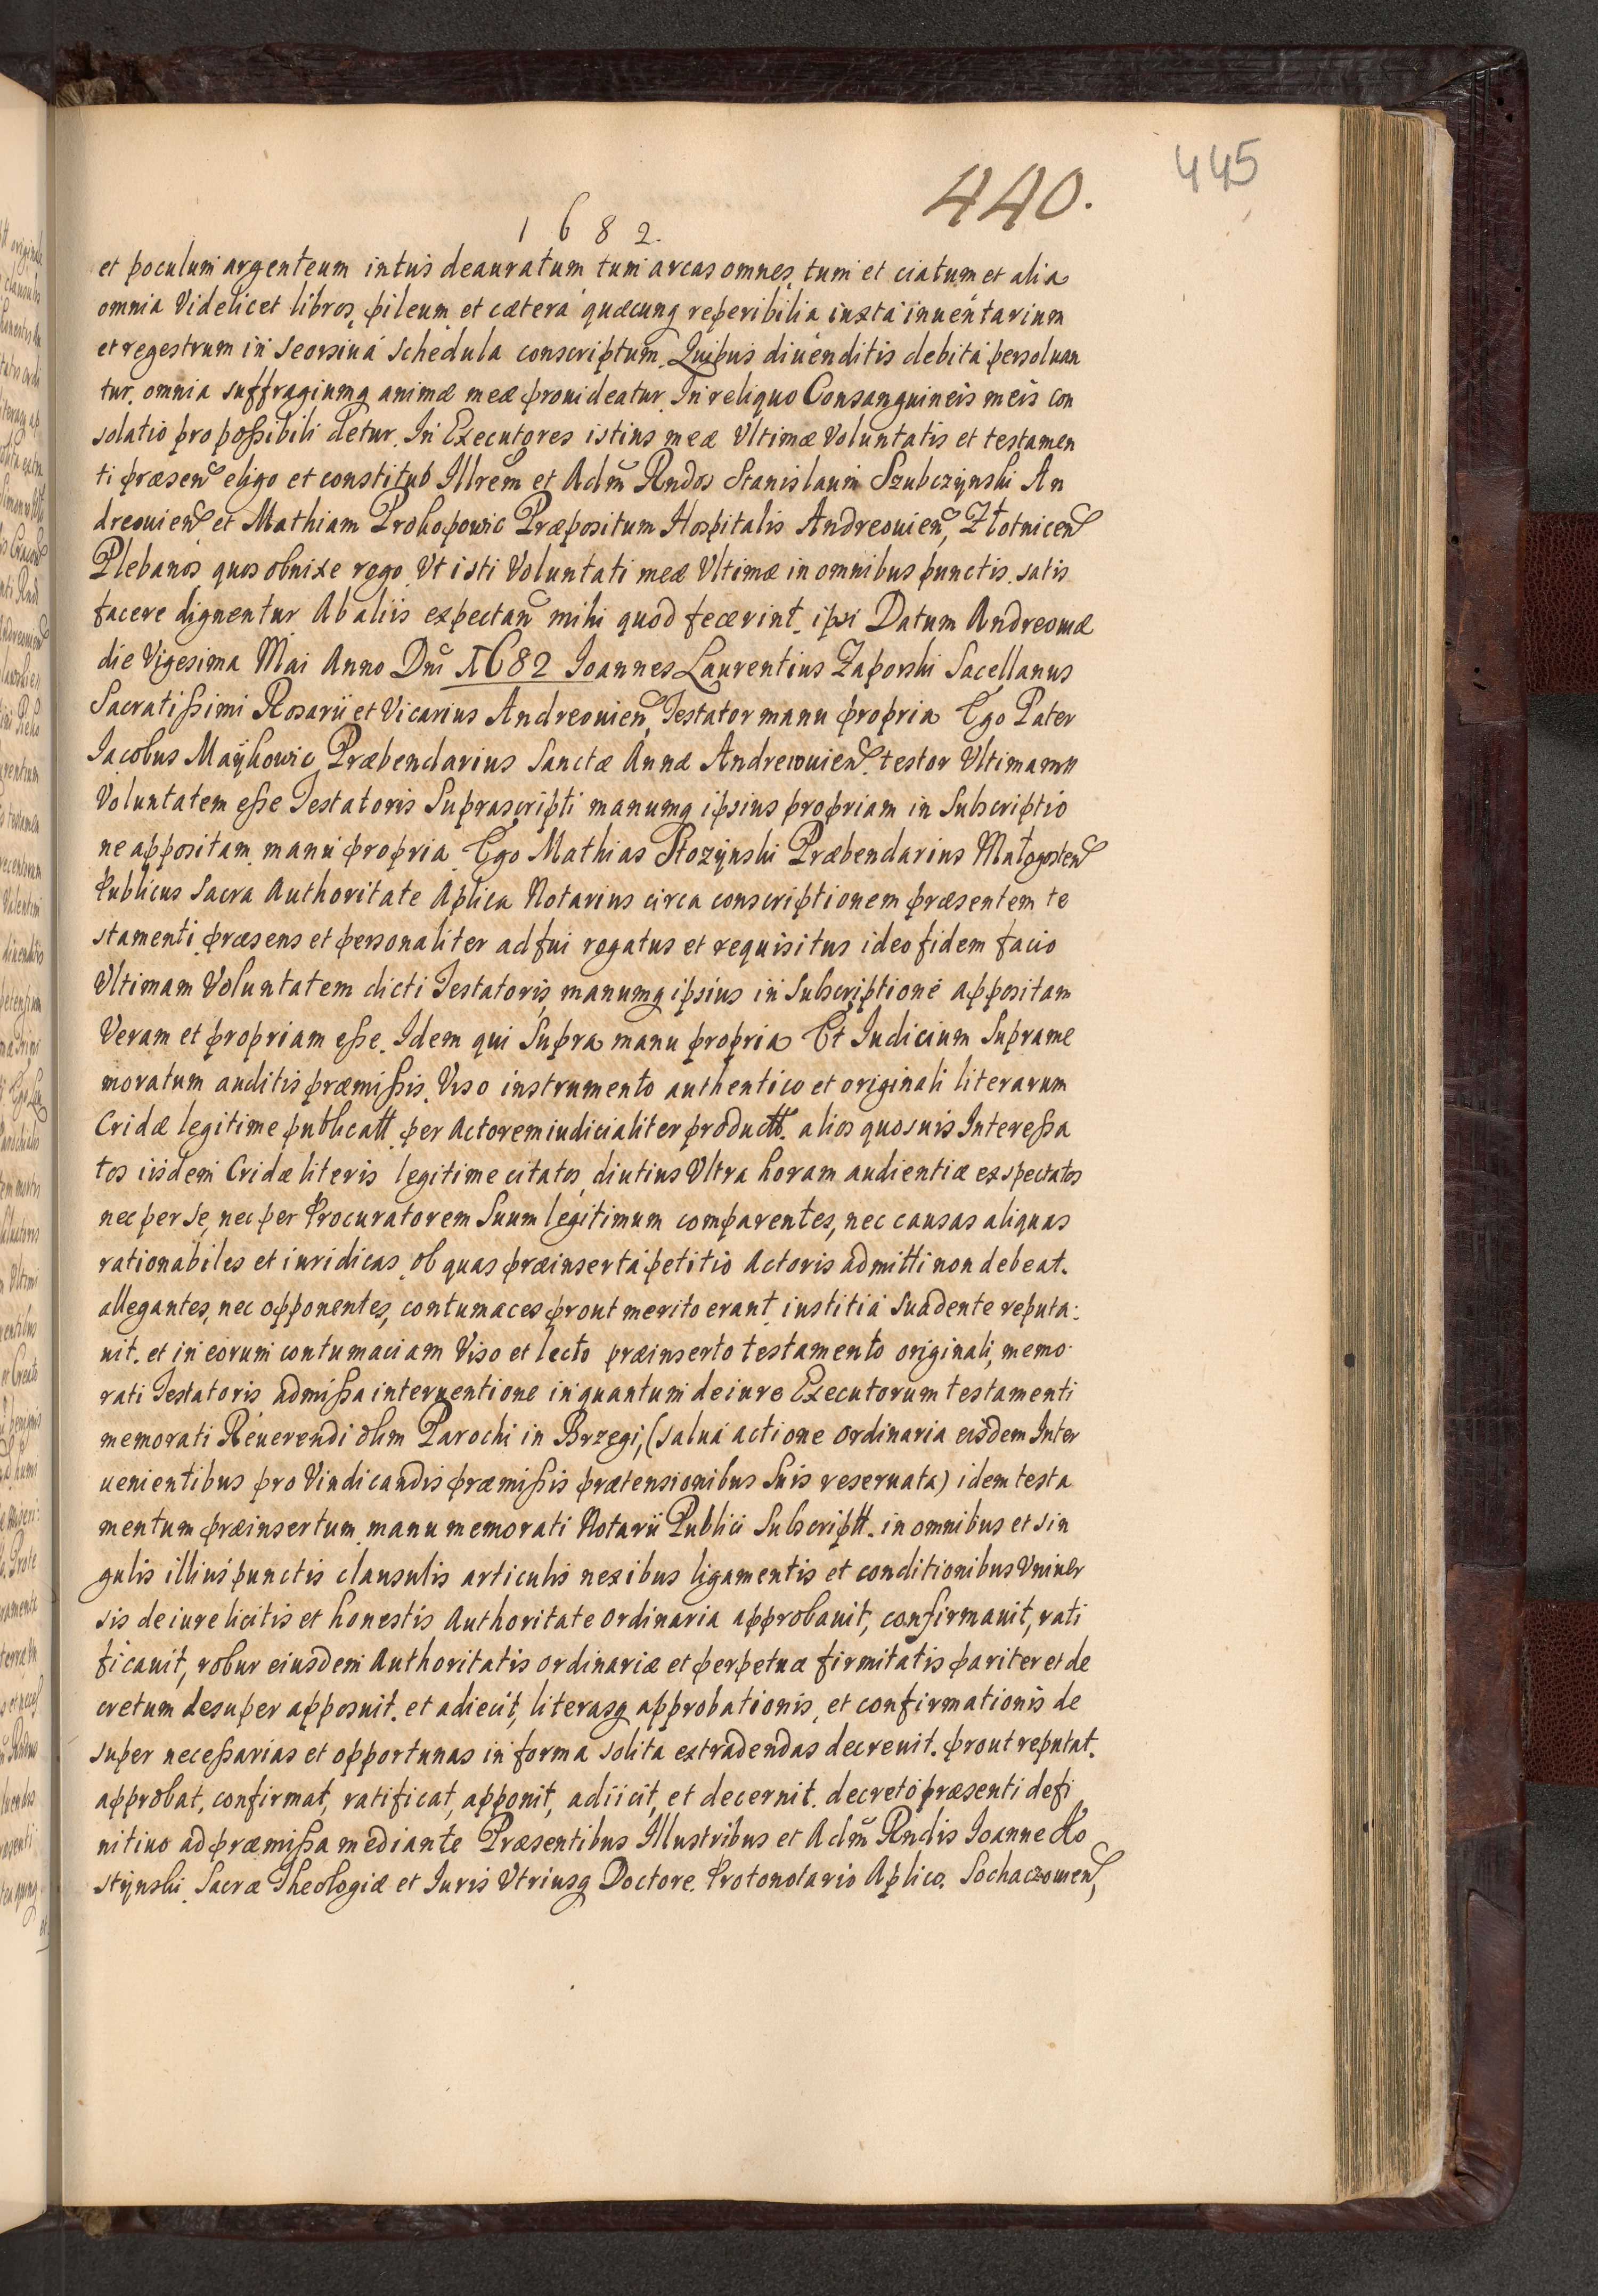 445
440.
1682.
et poculum argenteum intus deauratum tum arcas omnes, tum et ciatum et alia
omnia Videlicet libros, pileum et cætera quæcunq reperibilia iuxta inuentarium
et regestrum in seorsiua schedula conscriptum. Quibus diuenditis debita persoluan
tur. omnia suffragiumq animæ meæ prouideatur. In reliquo Consanguineis meis con
solatio pro poßibili detur. In Executores istius meæ Vltimæ Voluntatis et testamen
ti præsen eligo et constituo Illrem et Adm Rndos Stanislaum Szubczynski An
dreouien et Mathiam Prokopowic Præpositum Hospitalis Andreouien, Złotnicen
Plebanos quos obnixe rogo Vt isti Voluntati meæ Vltimæ in omnibus punctis satis
facere dignentur Ab aliis expectan mihi quod fecærint ipsi Datum Andreouiæ
die Vigesima Mai Anno Dni 1682 Ioannes Laurentius Zaporski Sacellanus
Sacratißimi Rosarii et Vicarius Andreouien, Testator manu propria Ego Pater
Iacobus Maykowic Præbendarius Sanctæ Annæ Andreouien testor Vltimamu
Voluntatem eße Testatoris Suprascripti manumq ipsius propriam in Subscriptio
ne appositam manu propria Ego Mathias Stozynski Præbendarius Małogosten
Publicus Sacra Authoritate Aplica Notarius circa conscriptionem præsentem te
stamenti præsens et personaliter adfui rogatus et requisitus ideo fidem facio
Vltimam Voluntatem dicti Testatoris, manumq ipsius in Subscriptione appositam
Veram et propriam eße. Idem qui Supra manu propria Et Iudicium Suprame
moratum auditis præmißis. Viso instrumento authentico et originali literarum
Cridæ legitime publicatt per Actorem iudicialiter productt. alios quosuis Intereßa
tos iisdem Cridæ literis legitime citatos, diutius Vltra horam audientiæ exspectatos
nec per se, nec per Procuratorem Suum legitimum comparentes, nec causas aliquas
rationabiles et iuridicas, ob quas præinserta petitio Actoris admitti non debeat.
allegantes, nec opponentes, contumaces prout merito erant iustitia Suadente reputa:
uit. et in eorum contumaciam Viso et lecto præinserto testamento originali, memo
rati Testatoris admißa interuentione in quantum de iure Executorum testamenti
memorati Reuerendi olim Parochi in Brzegi, (salua actione ordinaria eisdem Inter
uenientibus pro Vindicandis præmißis prætensionibus Suis reseruata) idem testa
mentum præinsertum manu memorati Notarii Publici Subscriptt. in omnibus et sin
gulis illius punctis clausulis articulis nexibus ligamentis et conditionibus Vniuer
sis de iure licitis et honestis Authoritate ordinaria approbauit, confirmauit, rati
ficauit, robur eiusdem Authoritatis ordinariæ et perpetuæ firmitatis pariter et de
cretum desuper apposuit. et adiecit, literasq approbationis, et confirmationis de
super neceßarias et opportunas in forma solita extradendas decreuit. prout reputat.
approbat, confirmat, ratificat, apponit, adiicit, et decernit. decreto præsenti defi
nitiuo ad præmißa mediante Præsentibus Illustribus et Adm Rndis Ioanne Ko
stynski Sacræ Theologiæ et Iuris Vtriusq Doctore. Protonotario Aplico. Sochaczouien,